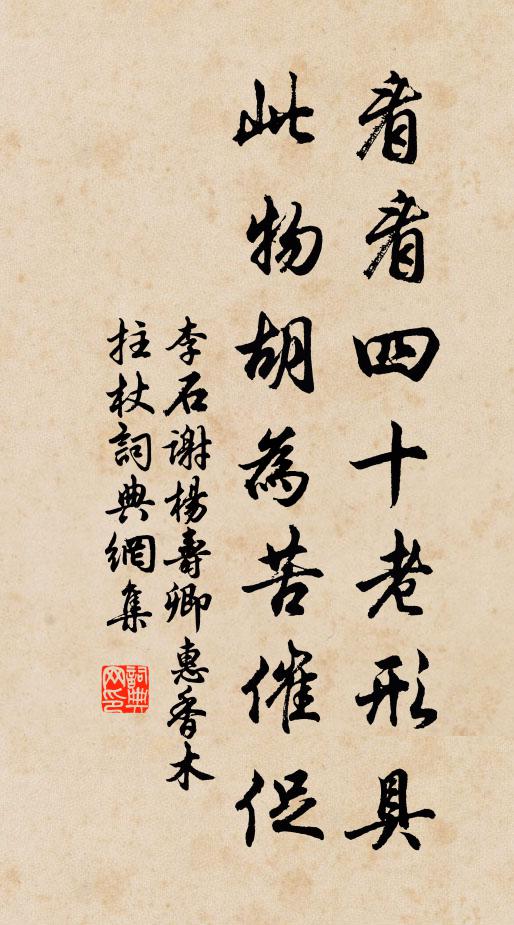 看看四十老形具
此物胡為苦催促
李石謝楊壽卿惠香木
拄杖詞典網集
詞典網印